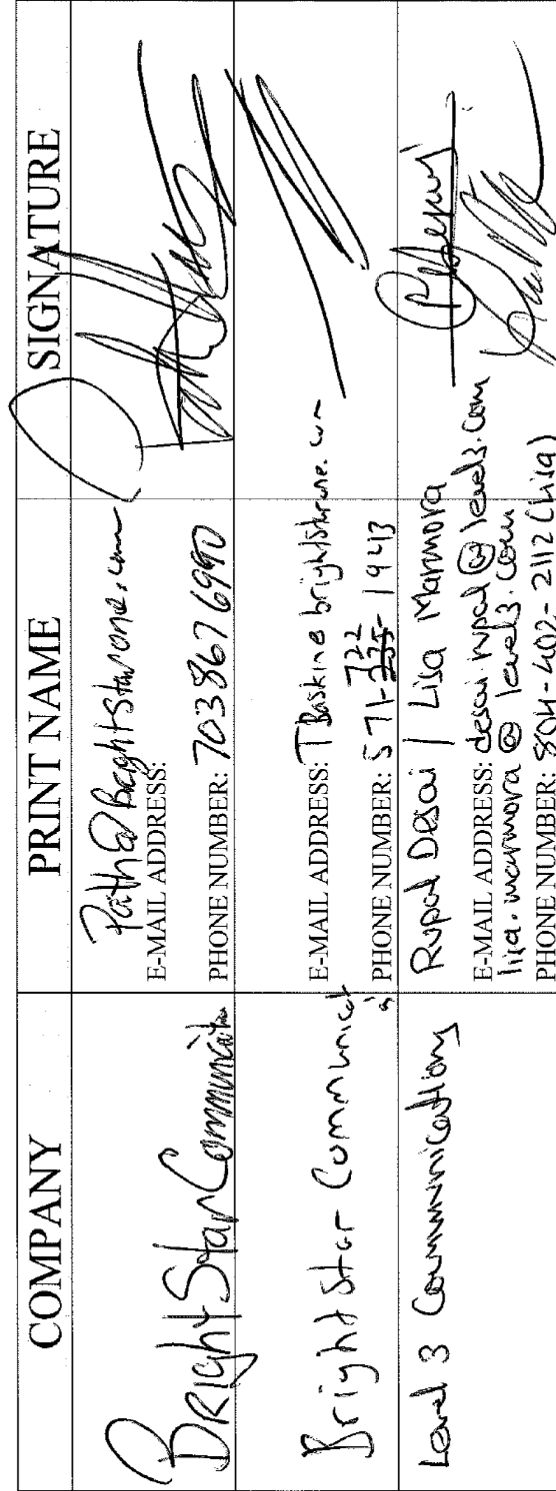 COMPANY
PRINT NAME
SIGNATURE
BRight Star Communication
Path@BrightStarone.com
E-MAIL ADDRESS:
PHONE NUMBER: 703 867 6990
Bright Star Communicat
E-MAIL ADDRESS: TBaskin@brightstarone.com
722
PHONE NUMBER: 571-335-1943
Level 3 Communications
Rupal Desai / Lisa Marmora
E-MAIL ADDRESS: desai.rupal@level3.com
lisa.marmora@level3.com
PHONE NUMBER: 804-402-2112 (Lisa)